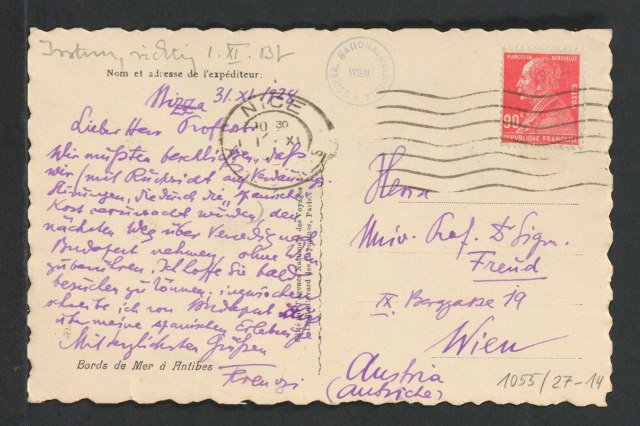 Irrtum, richtig 1. XI. Bf
Nom et adresse de l'expéditeur:
Nizza 31. XI. 1928
Lieber Herr Professor
Wir mußten beschließen, daß
wir (mit Rücksicht auf Verdauungs-
störungen, die durch die „spanische"
Kost verursacht wurden) den
nächsten Weg über Venedig nach
Budapest nehmen, ohne Wien
zu berühren. Ich hoffe Sie bald
besuchen zu können, inzwischen
schreibe ich von Budapest
über meine spanischen Erlebnisse
Mit herzlichsten Grüßen
Ferenczi
Bords de Mer à Antibes
NICE
XI
NATIONALBIBLIOTHEK
WIEN
MARCELIN BERTHELOT
POSTES
90c
REPUBLIQUE FRANÇAISE
Herrn
Univ. Prof. Dr Sigm.
Freud
IX. Berggasse 19
Wien
Austria
(Autriche)
1055/27-14